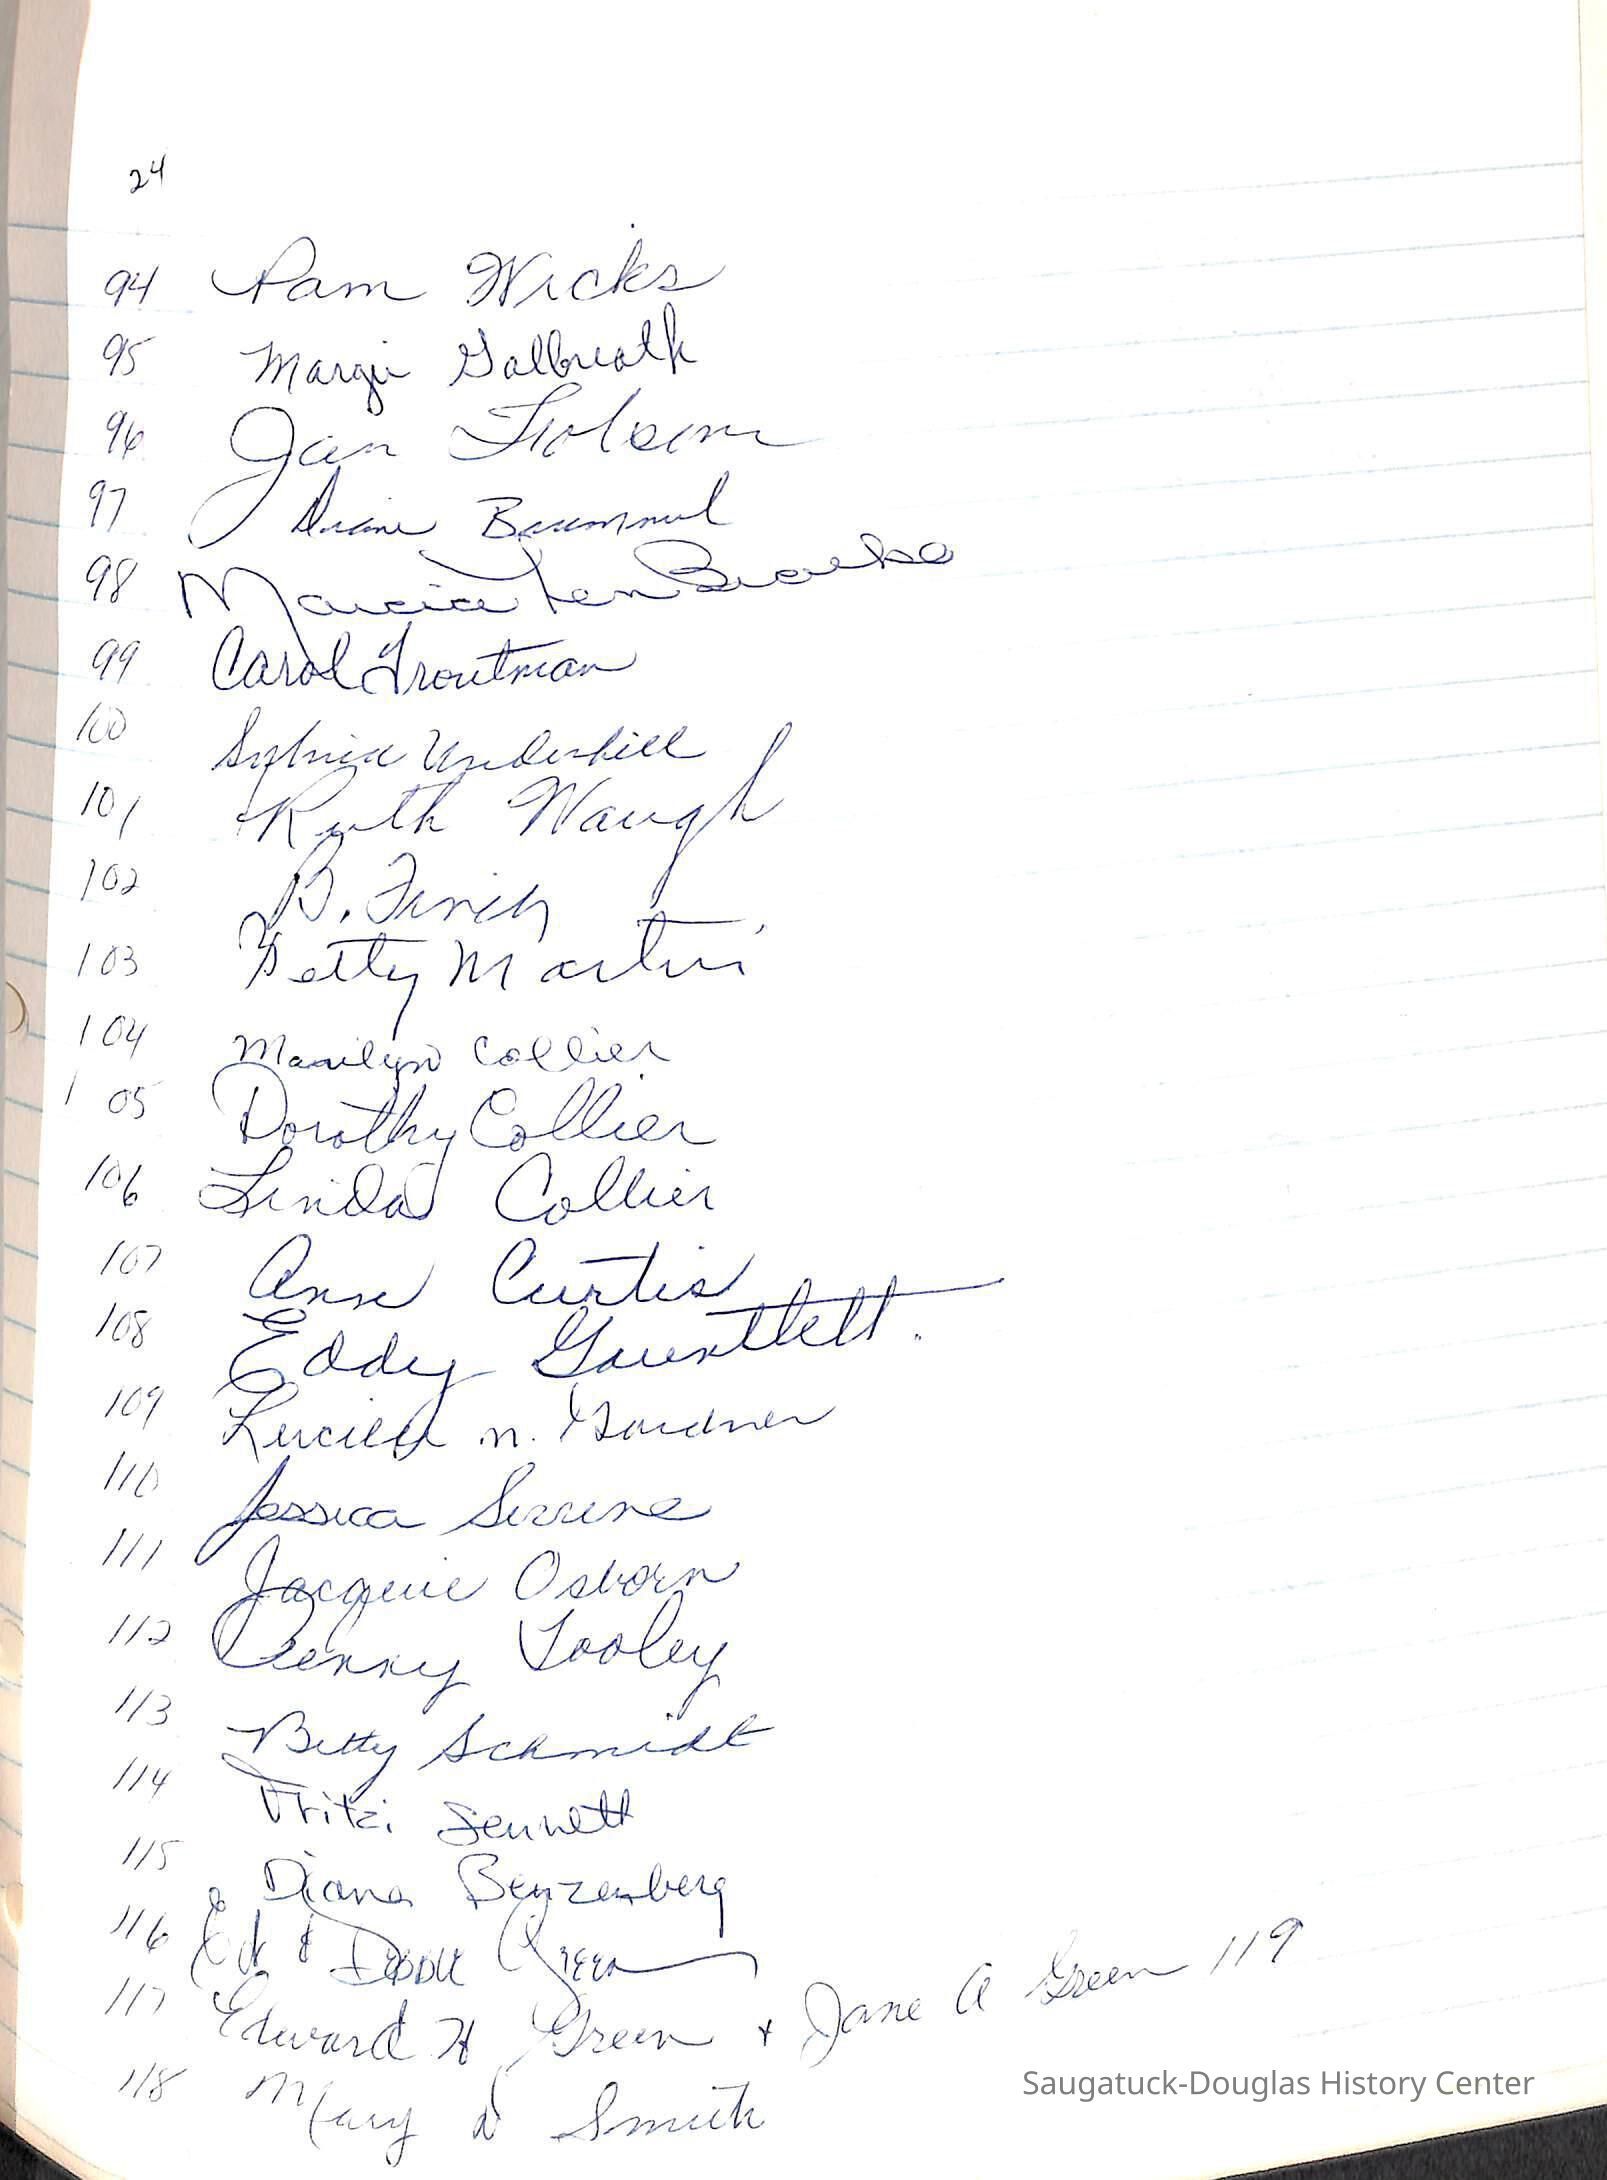 24
94 Pam Wicks
95 Margie Galbreath
96 Jan Folsom
97 Diane Brummel
98 Marcia Ten Broeke
99 Carol Troutman
100 Sylvia Underhill
101 Ruth Waugh
102 B. Finch
103 Betty Martin
104 Marilyn Collier
105 Dorothy Collier
106 Linda Collier
107 Anne Curtis
108 Eddy Gauntlett.
109 Lucille N. Gardner
110 Jessica Serrine
111 Jacquie Osborn
112 Penny Tooley
113 Betty Schmidt
114 Fritzi Sennett
115 Diana Benzenberg
116 Ed & Debbie Green
117 Edward H Green + Jane A Green 119
118 Mary D Smith
Saugatuck-Douglas History Center